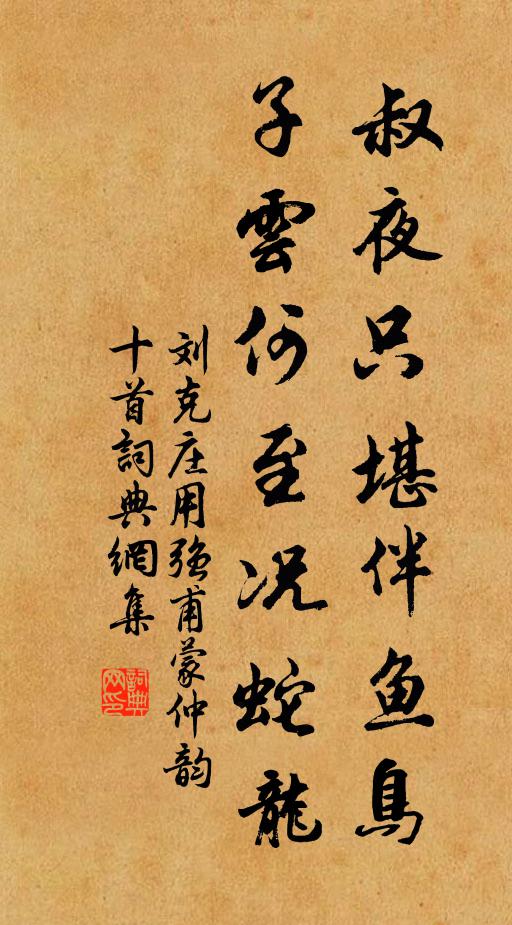 叔夜只堪伴鱼鳥
子雲何至况蛇龍
刘克庄用强甫蒙仲韵
十首詞典網集
詞典
网印